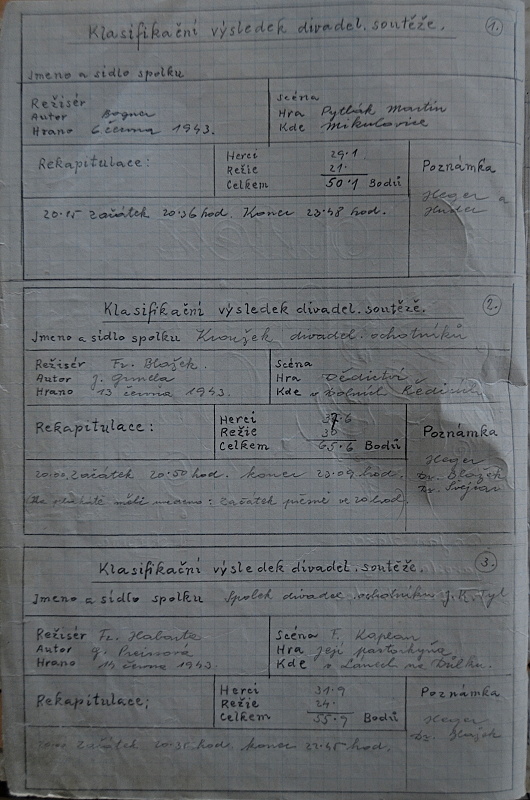 1.
Klasifikační výsledek divadel. soutěže.
Jmeno a sídlo spolku
Režisér
Autor Bogner
Hrano 6. června 1943.
Scéna
Hra Pytlák Martin
Kde Mikulovice
Rekapitulace:
Herci 29.1
Režie 21.
Celkem 50.1 Bodů
Poznámka
Heger a
20.15 začátek 20.36 hod. Konec 23.48 hod.
2.
Klasifikační výsledek divadel. soutěžě.
Jmeno a sídlo spolku Kroužek divadel. ochotníků
Režisér Fr. Blažek.
Autor J. Grmela
Hrano 13 června 1943.
Scéna
Hra Dědictví
Kde v Dolních Ředicích
Rekapitulace:
Herci 37.6
Režie
Celkem 65.6 Bodů
Poznámka
Heger
Dr. Blažek
Dr. Švejcar
20.00 začátek 20.50 hod. konec 23.09 hod.
Na plakátě měli uvedeno: začátek přesně ve 20 hod.
3.
Klasifikační výsledek divadel. soutěže.
Jmeno a sídlo spolku Spolek divadel. ochotníků J. K. Tyl
Režisér Fr. Habarta
Autor G. Preissová
Hrano 14 června 1943.
Scéna F. Kaplan
Hra Její pastorkyňa
Kde v Lánech na Důlku.
Rekapitulace;
Herci 31.9
Režie 24.
Celkem 55.9 Bodů
Poznámka
Heger
Dr. Blažek
začátek 20.35 hod. konec 22.45 hod.